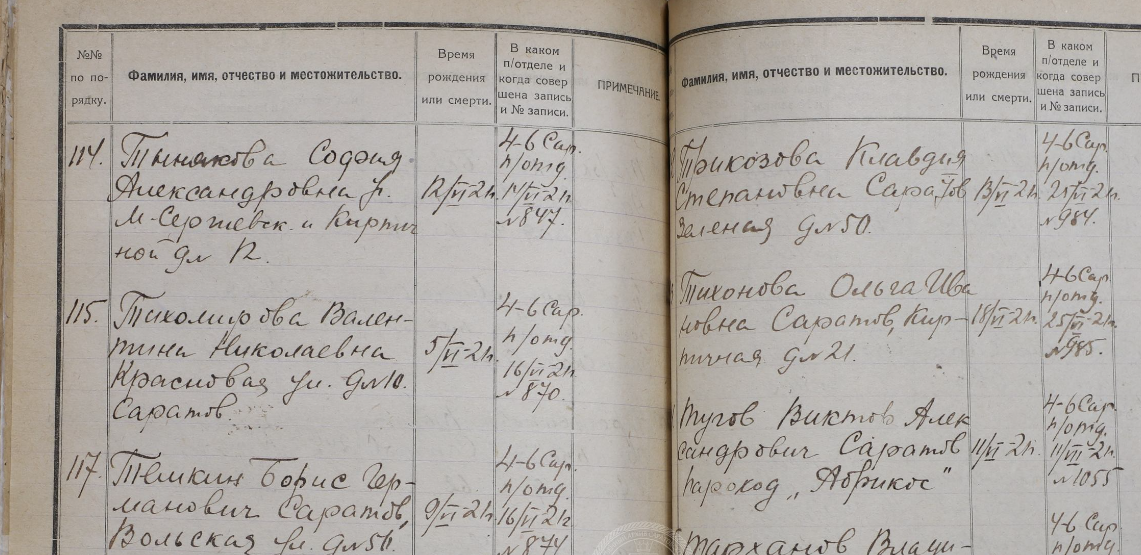 №№
по по-
рядку.
Фамилия, имя, отчество и местожительство.
Время
рождения
или смерти.
В каком
п/отделе и
когда совер
шена запись
и № записи.
ПРИМЕЧАНИЕ.
114.
Тынякова София
Александровна
М-Сергиевск. и Кирпич
ной д№ 12.
12/VI-21г.
4-6 Сар.
п/отд.
17/VI-21г.
№847.
115.
Тихомирова Вален-
тина Николаевна
ул. д№10.
Саратов
5/VI-21г.
4-6 Сар.
п/отд
16/VI-21г
№870.
117.
Темкин Борис Гер-
манович Саратов,
Вольская ул. д№56.
9/VI-21г
4-6 Сар.
п/отд.
16/VI-21г
№874
Фамилия, имя, отчество и местожительство.
Время
рождения
или смерти.
В каком
п/отделе и
когда совер
шена запись
и № записи.
П
Трикозова Клавдия
Степановна Саратов
Зеленая д№50.
13/VI-21г.
4-6 Сар.
п/отд.
25/VI-21г.
№984.
Тихонова Ольга Ива
новна Саратов, Кир-
пичная д№21.
18/VI-21г.
4-6 Сар.
п/отд.
25/VI-21г.
№985.
Тугов Виктов Алек
сандрович Саратов
пароход „Абрикос"
11/VI-21г.
4-6 Сар.
п/отд.
11/VII-21г.
№1055
Тарханов Влади-
4-6 Сар.
п/отд.